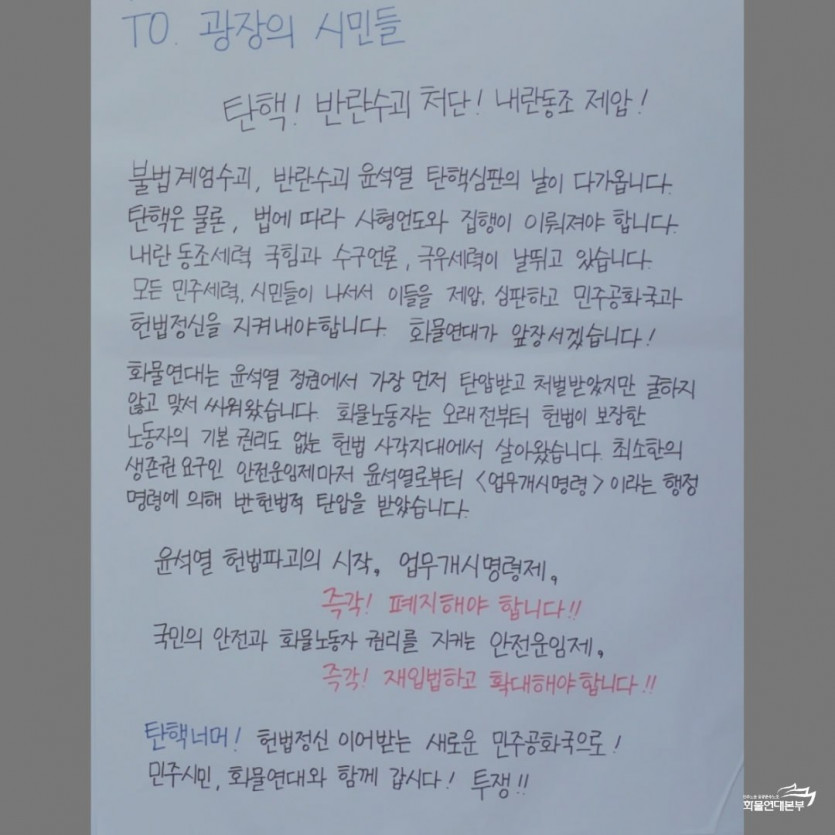 TO. 광장의 시민들
탄핵! 반란수괴 처단! 내란동조 제압!
불법계엄수괴, 반란수괴 윤석열 탄핵심판의 날이 다가옵니다.
탄핵은 물론, 법에 따라 사형언도와 집행이 이뤄져야 합니다.
내란 동조세력 국힘과 수구언론, 극우세력이 날뛰고 있습니다.
모든 민주세력, 시민들이 나서서 이들을 제압, 심판하고 민주공화국과
헌법정신을 지켜내야합니다. 화물연대가 앞장서겠습니다!
화물연대는 윤석열 정권에서 가장 먼저 탄압받고 처벌받았지만 굴하지
않고 맞서 싸워왔습니다. 화물노동자는 오래전부터 헌법이 보장한
노동자의 기본 권리도 없는 헌법 사각지대에서 살아왔습니다. 최소한의
생존권 요구인 안전운임제마저 윤석열로부터 <업무개시명령>이라는 행정
명령에 의해 반헌법적 탄압을 받았습니다.
윤석열 헌법파괴의 시작, 업무개시명령제,
즉각! 폐지해야 합니다!!
국민의 안전과 화물노동자 권리를 지키는 안전운임제,
즉각! 재입법하고 확대해야합니다!!
탄핵너머! 헌법정신 이어받는 새로운 민주공화국으로!
민주시민, 화물연대와 함께 갑시다! 투쟁!!
화물연대본부